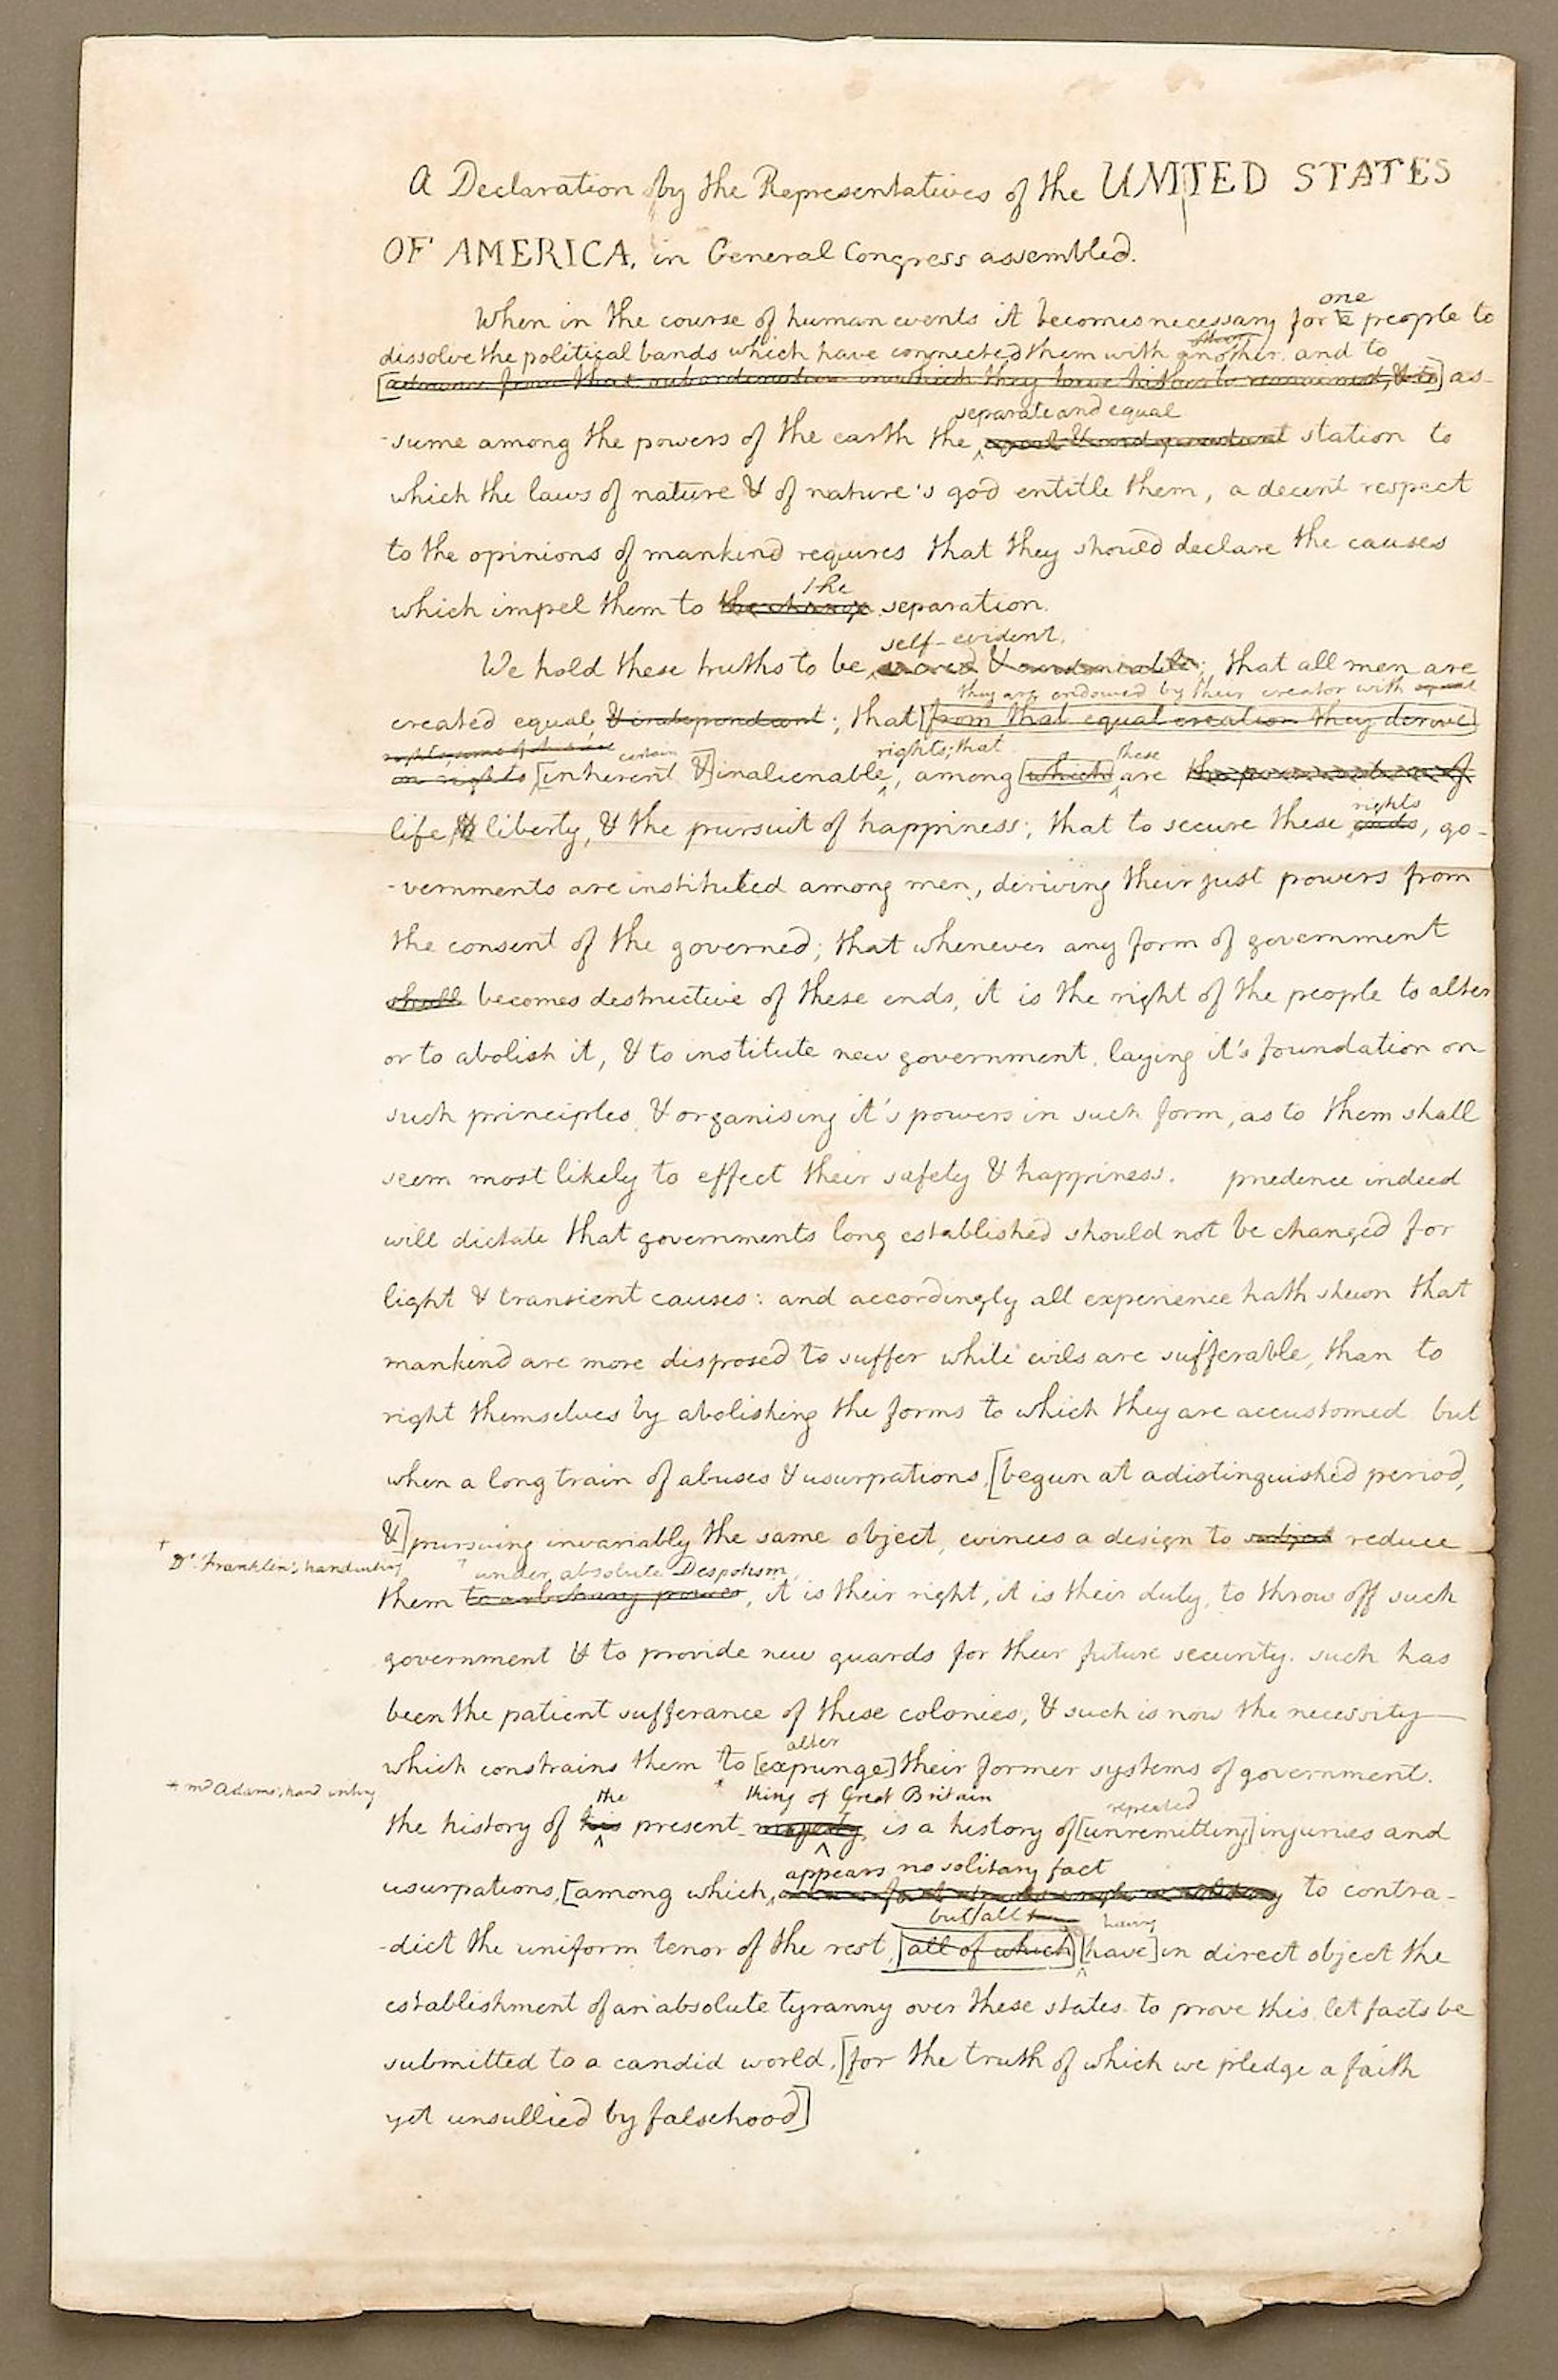 A Declaration by the Representatives of the UNITED STATES
OF AMERICA, in General Congress assembled.
one
When in the course of human events it becomes necessary for a people to
dissolve the political bands which have connected them with another, and to
[advance from that subordination in which they have hitherto remained, & to] as-
separate and equal
-sume among the powers of the earth the equal & independant station to
which the laws of nature & of nature's god entitle them, a decent respect
to the opinions of mankind requires that they should declare the causes
the
which impel them to the change separation.
self-evident,
We hold these truths to be sacred & undeniable; that all men are
they are endowed by their creator with equal
created equal & independant; that [from that equal creation they derive]
rights, some of which are certain rights; that these
in rights [inherent &] inalienable, among [which] are the preservation of
rights
life, & liberty, & the pursuit of happiness; that to secure these ends, go-
-vernments are instituted among men, deriving their just powers from
the consent of the governed; that whenever any form of government
shall becomes destructive of these ends, it is the right of the people to alter
or to abolish it, & to institute new government, laying it's foundation on
such principles, & organising it's powers in such form, as to them shall
seem most likely to effect their safety & happiness. prudence indeed
will dictate that governments long established should not be changed for
light & transient causes: and accordingly all experience hath shewn that
mankind are more disposed to suffer while evils are sufferable, than to
right themselves by abolishing the forms to which they are accustomed. but
when a long train of abuses & usurpations, [begun at a distinguished period,
&] pursuing invariably the same object, evinces a design to subject reduce
† Dr. Franklin's handwriting
† under absolute Despotism
them to arbitrary power, it is their right, it is their duty, to throw off such
government & to provide new guards for their future security. such has
been the patient sufferance of these colonies, & such is now the necessity
alter
which constrains them to [expunge] their former systems of government.
* Mr Adams's hand writing
the * king of Great Britain repeated
the history of his present majesty, is a history of [unremitting] injuries and
appears no solitary fact
usurpations, [among which, to contra-
but all having
-dict the uniform tenor of the rest, [all of which] [have] in direct object the
establishment of an absolute tyranny over these states. to prove this, let facts be
submitted to a candid world, [for the truth of which we pledge a faith
yet unsullied by falsehood]